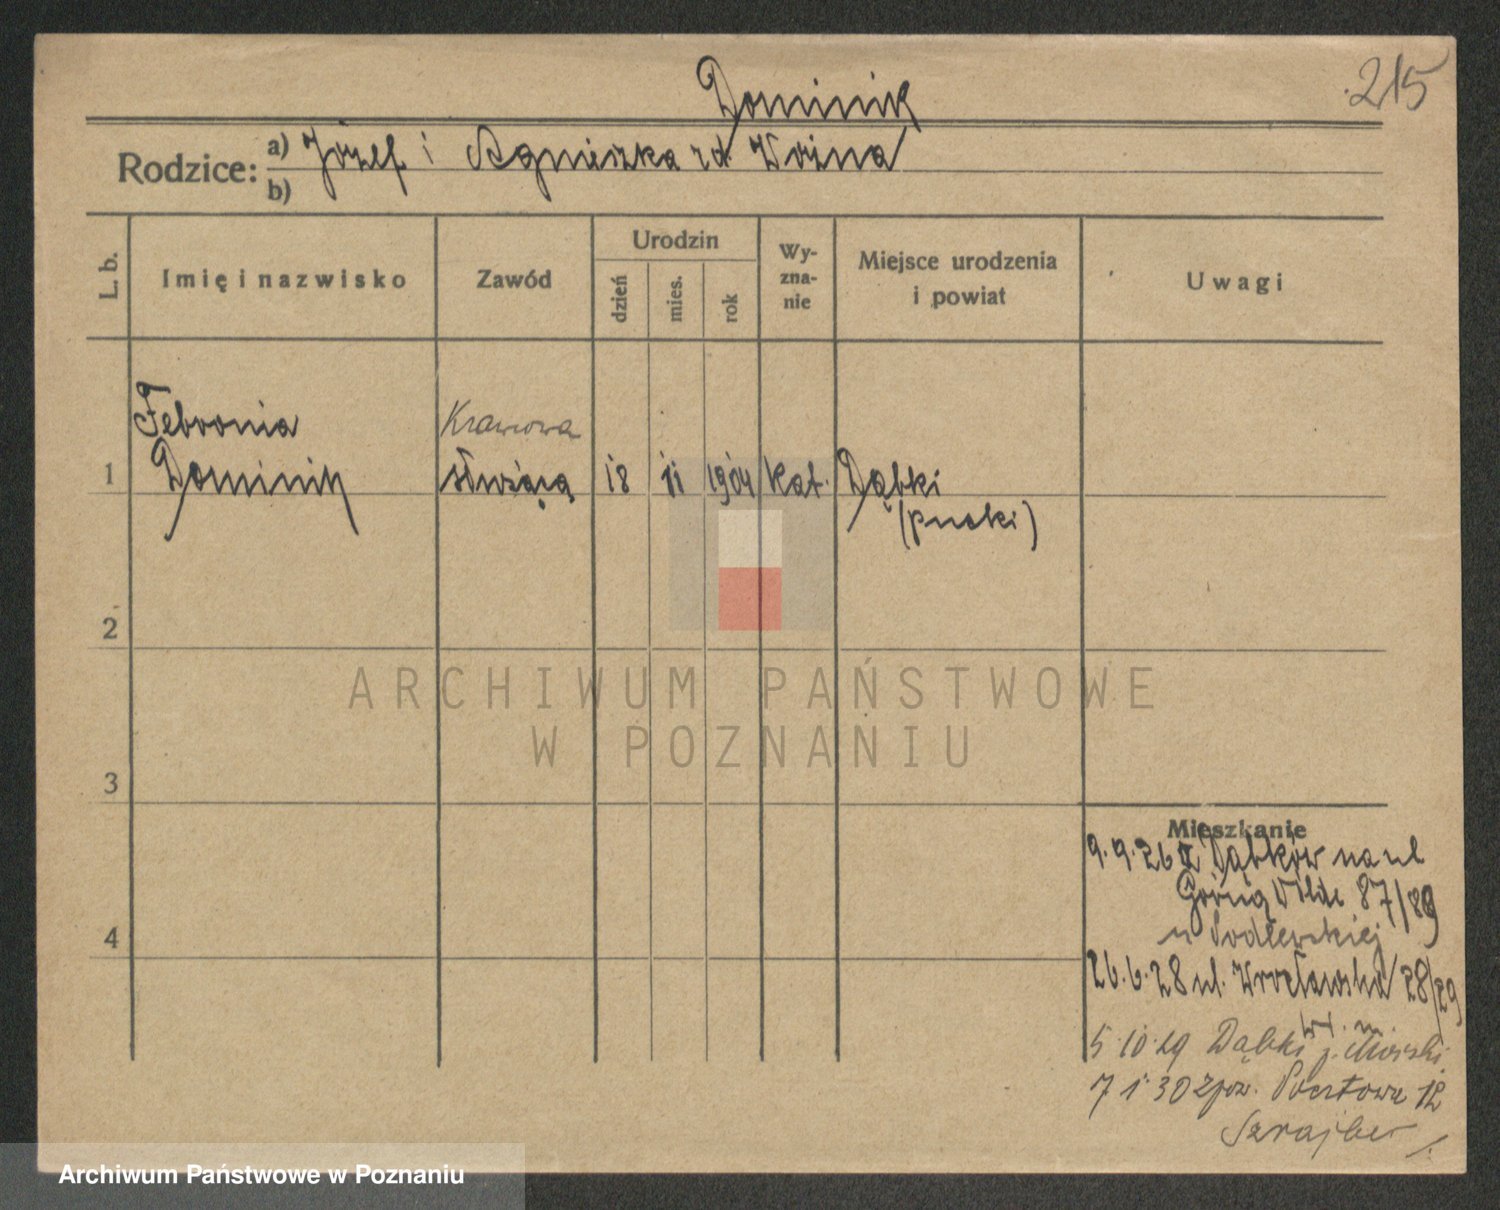 215
Dominik
Rodzice: a) Józef i Agnieszka zd. Woźna
b)
L. b.
Imię i nazwisko
Zawód
Urodzin
dzień
mies.
rok
Wy-
zna-
nie
Miejsce urodzenia
i powiat
Uwagi
Febronia
Krawcowa
1 Dominik służąca 18 11 1904 kat. Dąbki
(pucki)
2
3
4
ARCHIWUM PAŃSTWOWE
W POZNANIU
Mieszkanie
9.9.26 z Dąbków na ul
Górną Wilde 87/89
u Podlewskiej
26.6.28 ul. Wrocławska 28/29
5 10 29 Dąbki p. Morski.
7 1 30 zpow. Pocztowa 12
Szrajber
Archiwum Państwowe w Poznaniu